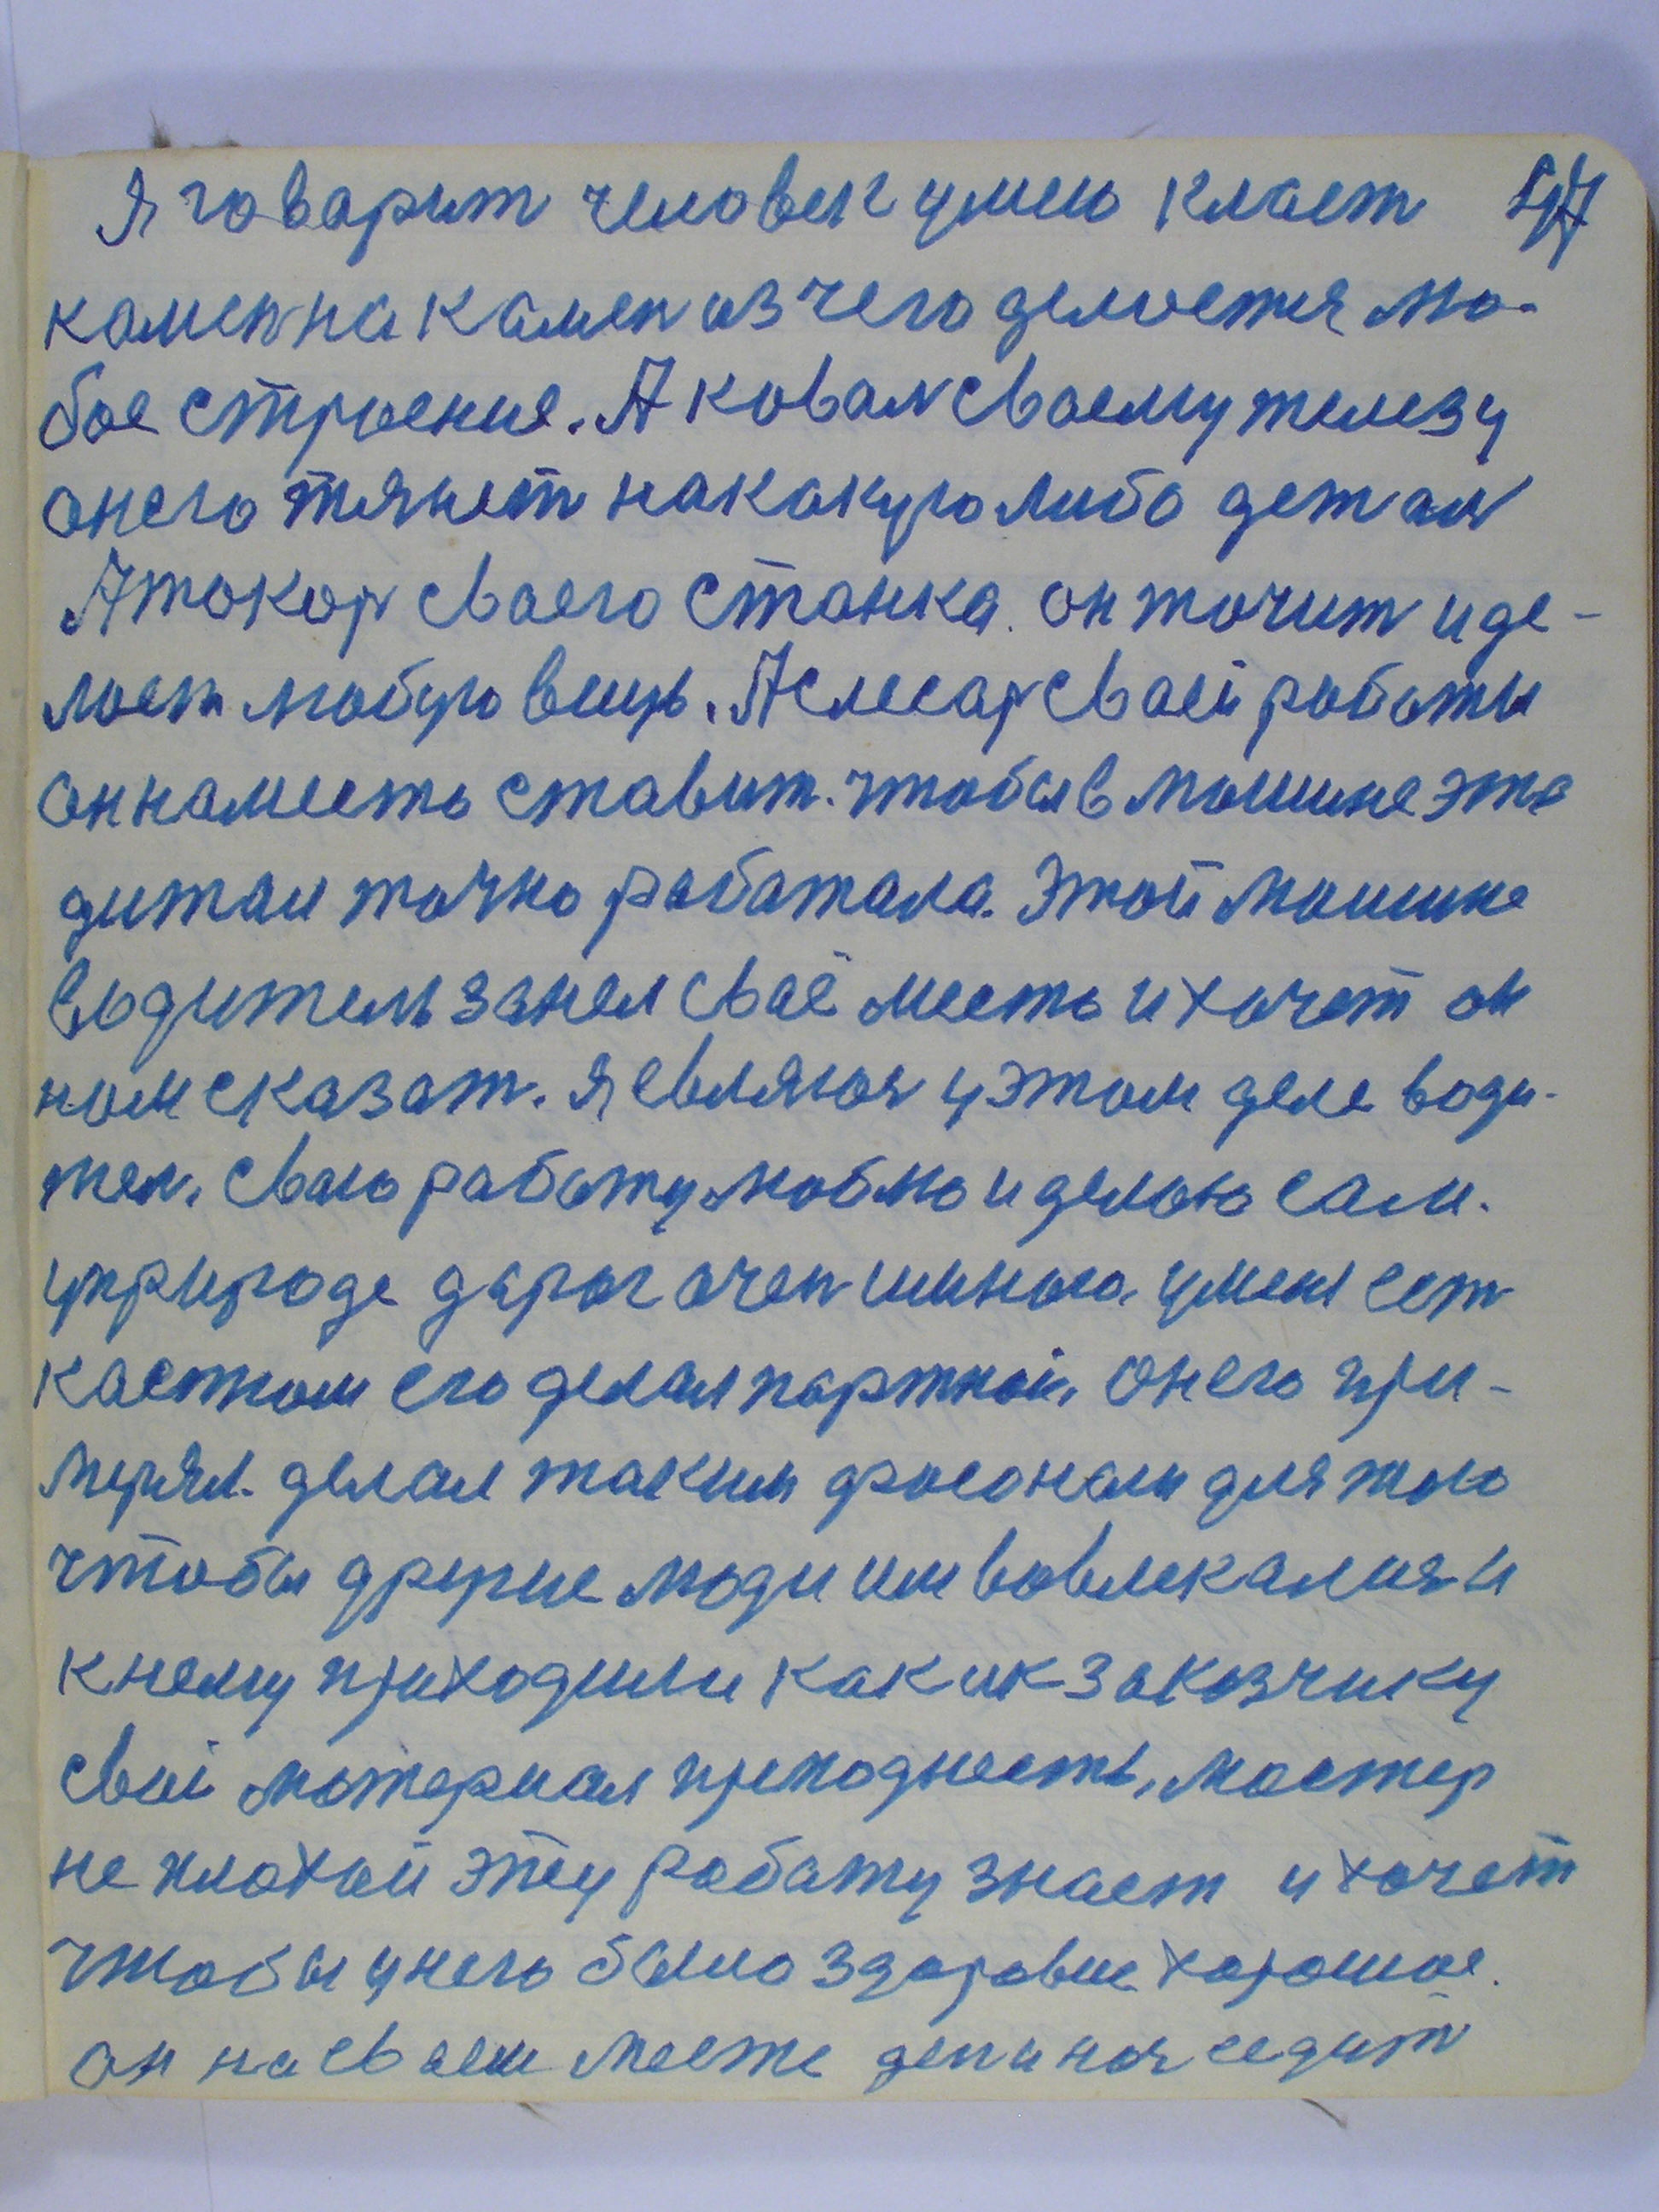 Я говарит человек умею класт
камен на камен из чего делоется лю-
бое строение. А ковал своему железу
он его тянет на какую либо детал
А токор своего станка. он точит и де-
лоет любую вещь. А слесар своей работы
он на место ставит. чтобы в машине эта
дитал точно работала. Этой машине
водитель занел своё место и хочет он
нам сказат. я евляюя у этом деле води-
тел, сваю работу люблю и делою сам.
у природе дарог очен много, у меня ест
кастюм его делал партной, он его при-
мерял. делал таким фосоном для того
чтобы другие люди им вовлекалися и
к нему приходили как и к закозчику
свой мотериал преподнесть, мастер
не плохой эту работу знает и хочет
чтобы у него было здоровие хорошое.
он на своем месте ден и ноч седит